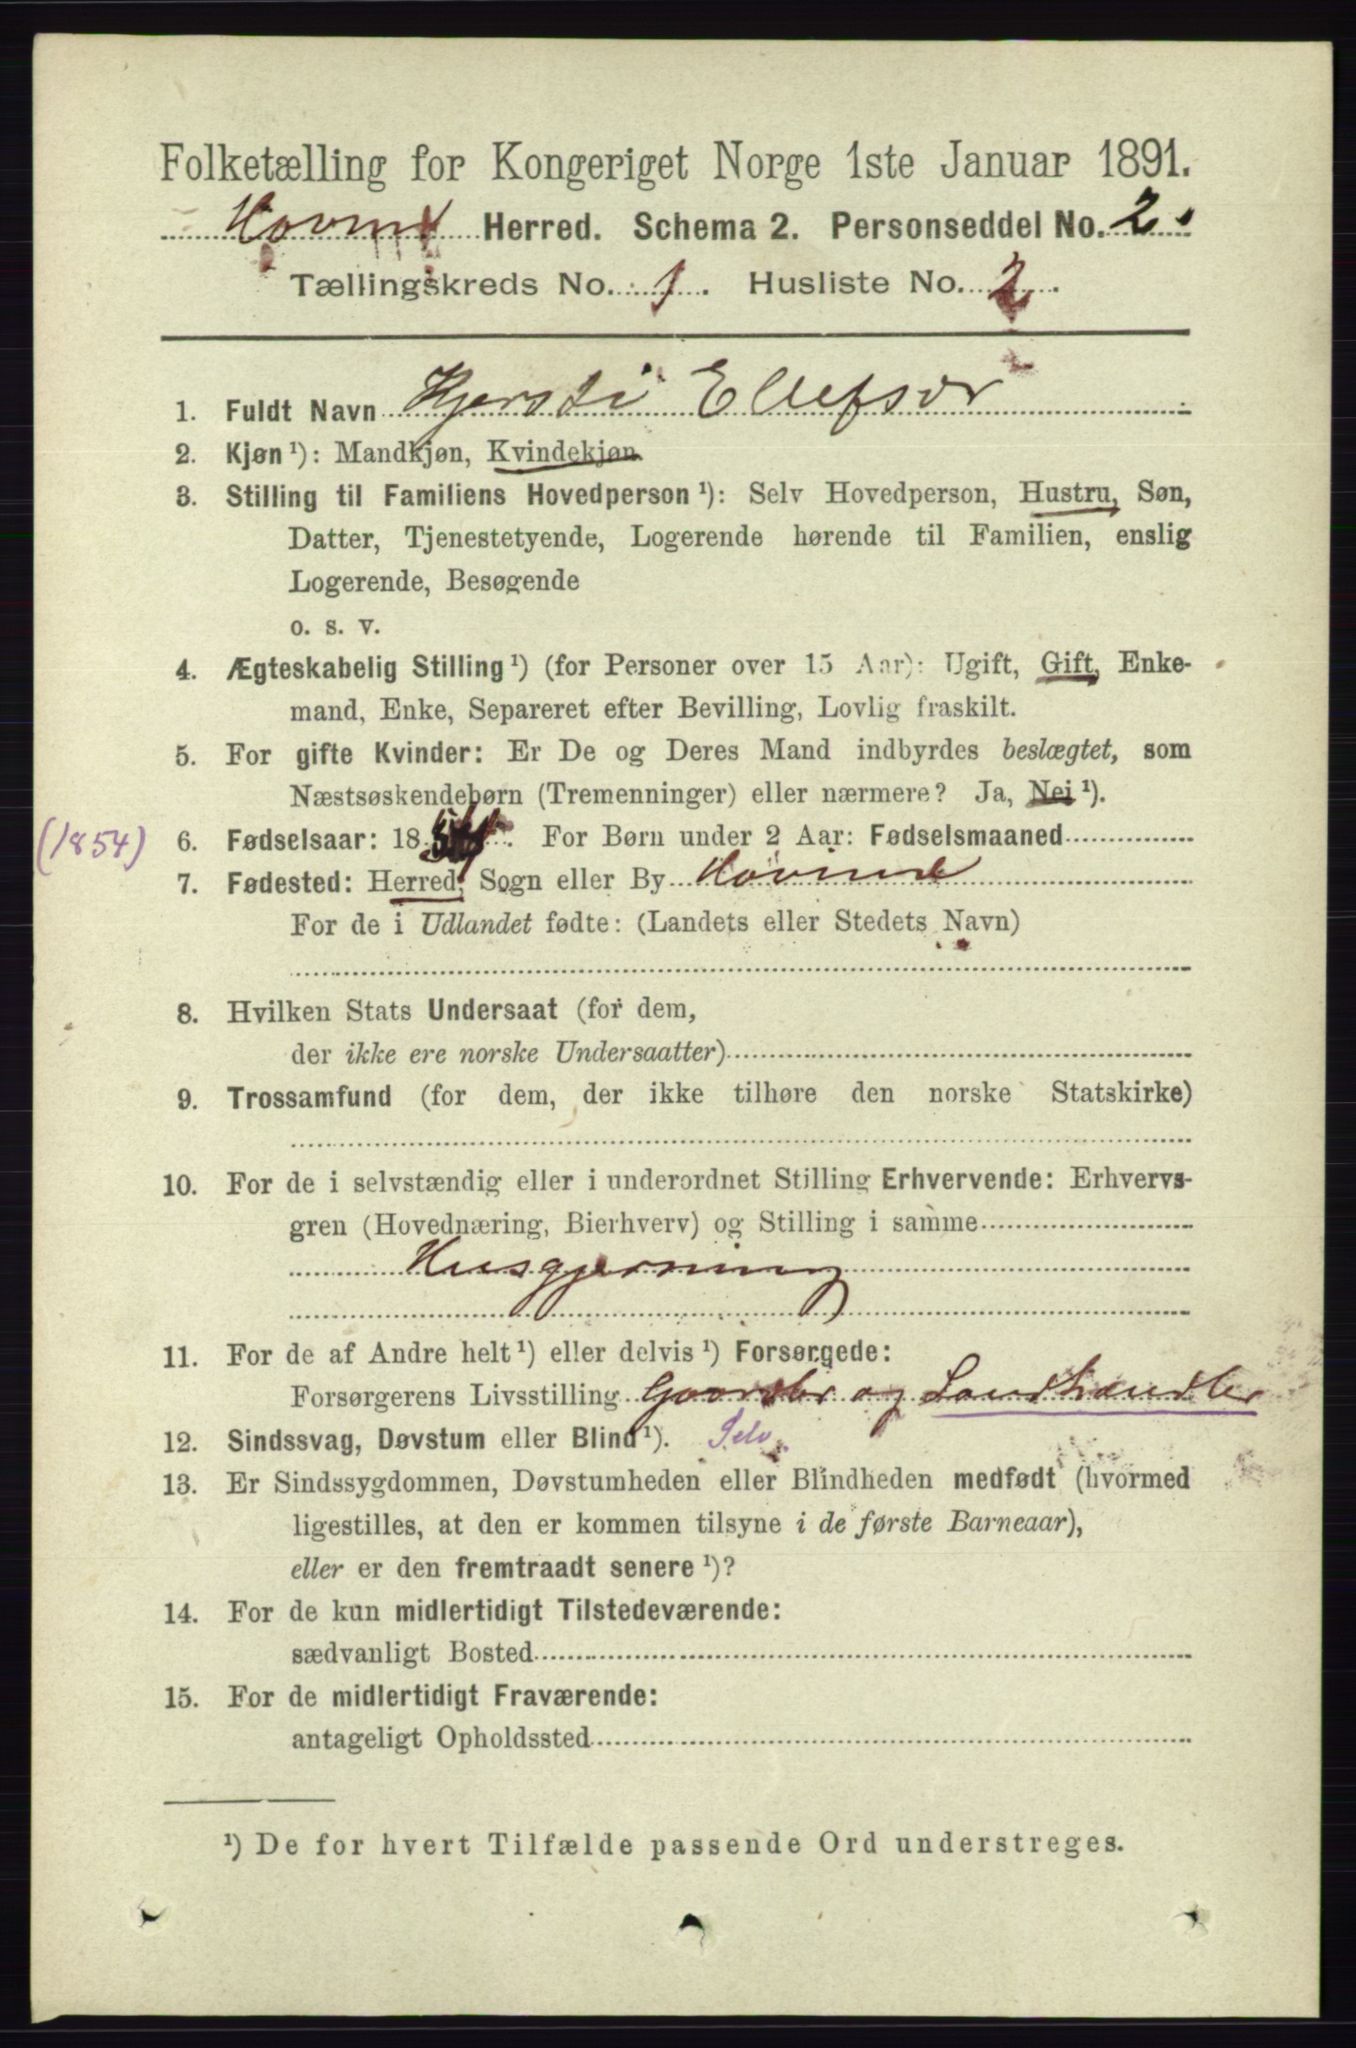 Folketælling for Kongeriget Norge 1ste Januar 1891.
Hovind Herred. Schema 2. Personseddel No. 2.
Tællingskreds No. 1. Husliste No. 2.
1. Fuldt Navn Kjersti Ellefsdr
2. Kjøn ¹): Mandkjøn, Kvindekjøn
3. Stilling til Familiens Hovedperson ¹): Selv Hovedperson, Hustru, Søn,
Datter, Tjenestetyende, Logerende hørende til Familien, enslig
Logerende, Besøgende
o. s. v.
4. Ægteskabelig Stilling ¹) (for Personer over 15 Aar): Ugift, Gift, Enke-
mand, Enke, Separeret efter Bevilling, Lovlig fraskilt.
5. For gifte Kvinder: Er De og Deres Mand indbyrdes beslægtet, som
Næstsøskendebørn (Tremenninger) eller nærmere? Ja, Nei ¹).
(1854) 6. Fødselsaar: 18 . For Børn under 2 Aar: Fødselsmaaned
7. Fødested: Herred, Sogn eller By Hovind
For de i Udlandet fødte: (Landets eller Stedets Navn)
8. Hvilken Stats Undersaat (for dem,
der ikke ere norske Undersaatter)
9. Trossamfund (for dem, der ikke tilhøre den norske Statskirke)
10. For de i selvstændig eller i underordnet Stilling Erhvervende: Erhvervs-
gren (Hovednæring, Bierhverv) og Stilling i samme
Husgjerning
11. For de af Andre helt ¹) eller delvis ¹) Forsørgede:
Forsørgerens Livsstilling Gaardbr og Landhandler
12. Sindssvag, Døvstum eller Blind ¹). Selv
13. Er Sindssygdommen, Døvstumheden eller Blindheden medfødt (hvormed
ligestilles, at den er kommen tilsyne i de første Barneaar),
eller er den fremtraadt senere ¹)?
14. For de kun midlertidigt Tilstedeværende:
sædvanligt Bosted
15. For de midlertidigt Fraværende:
antageligt Opholdssted
¹) De for hvert Tilfælde passende Ord understreges.